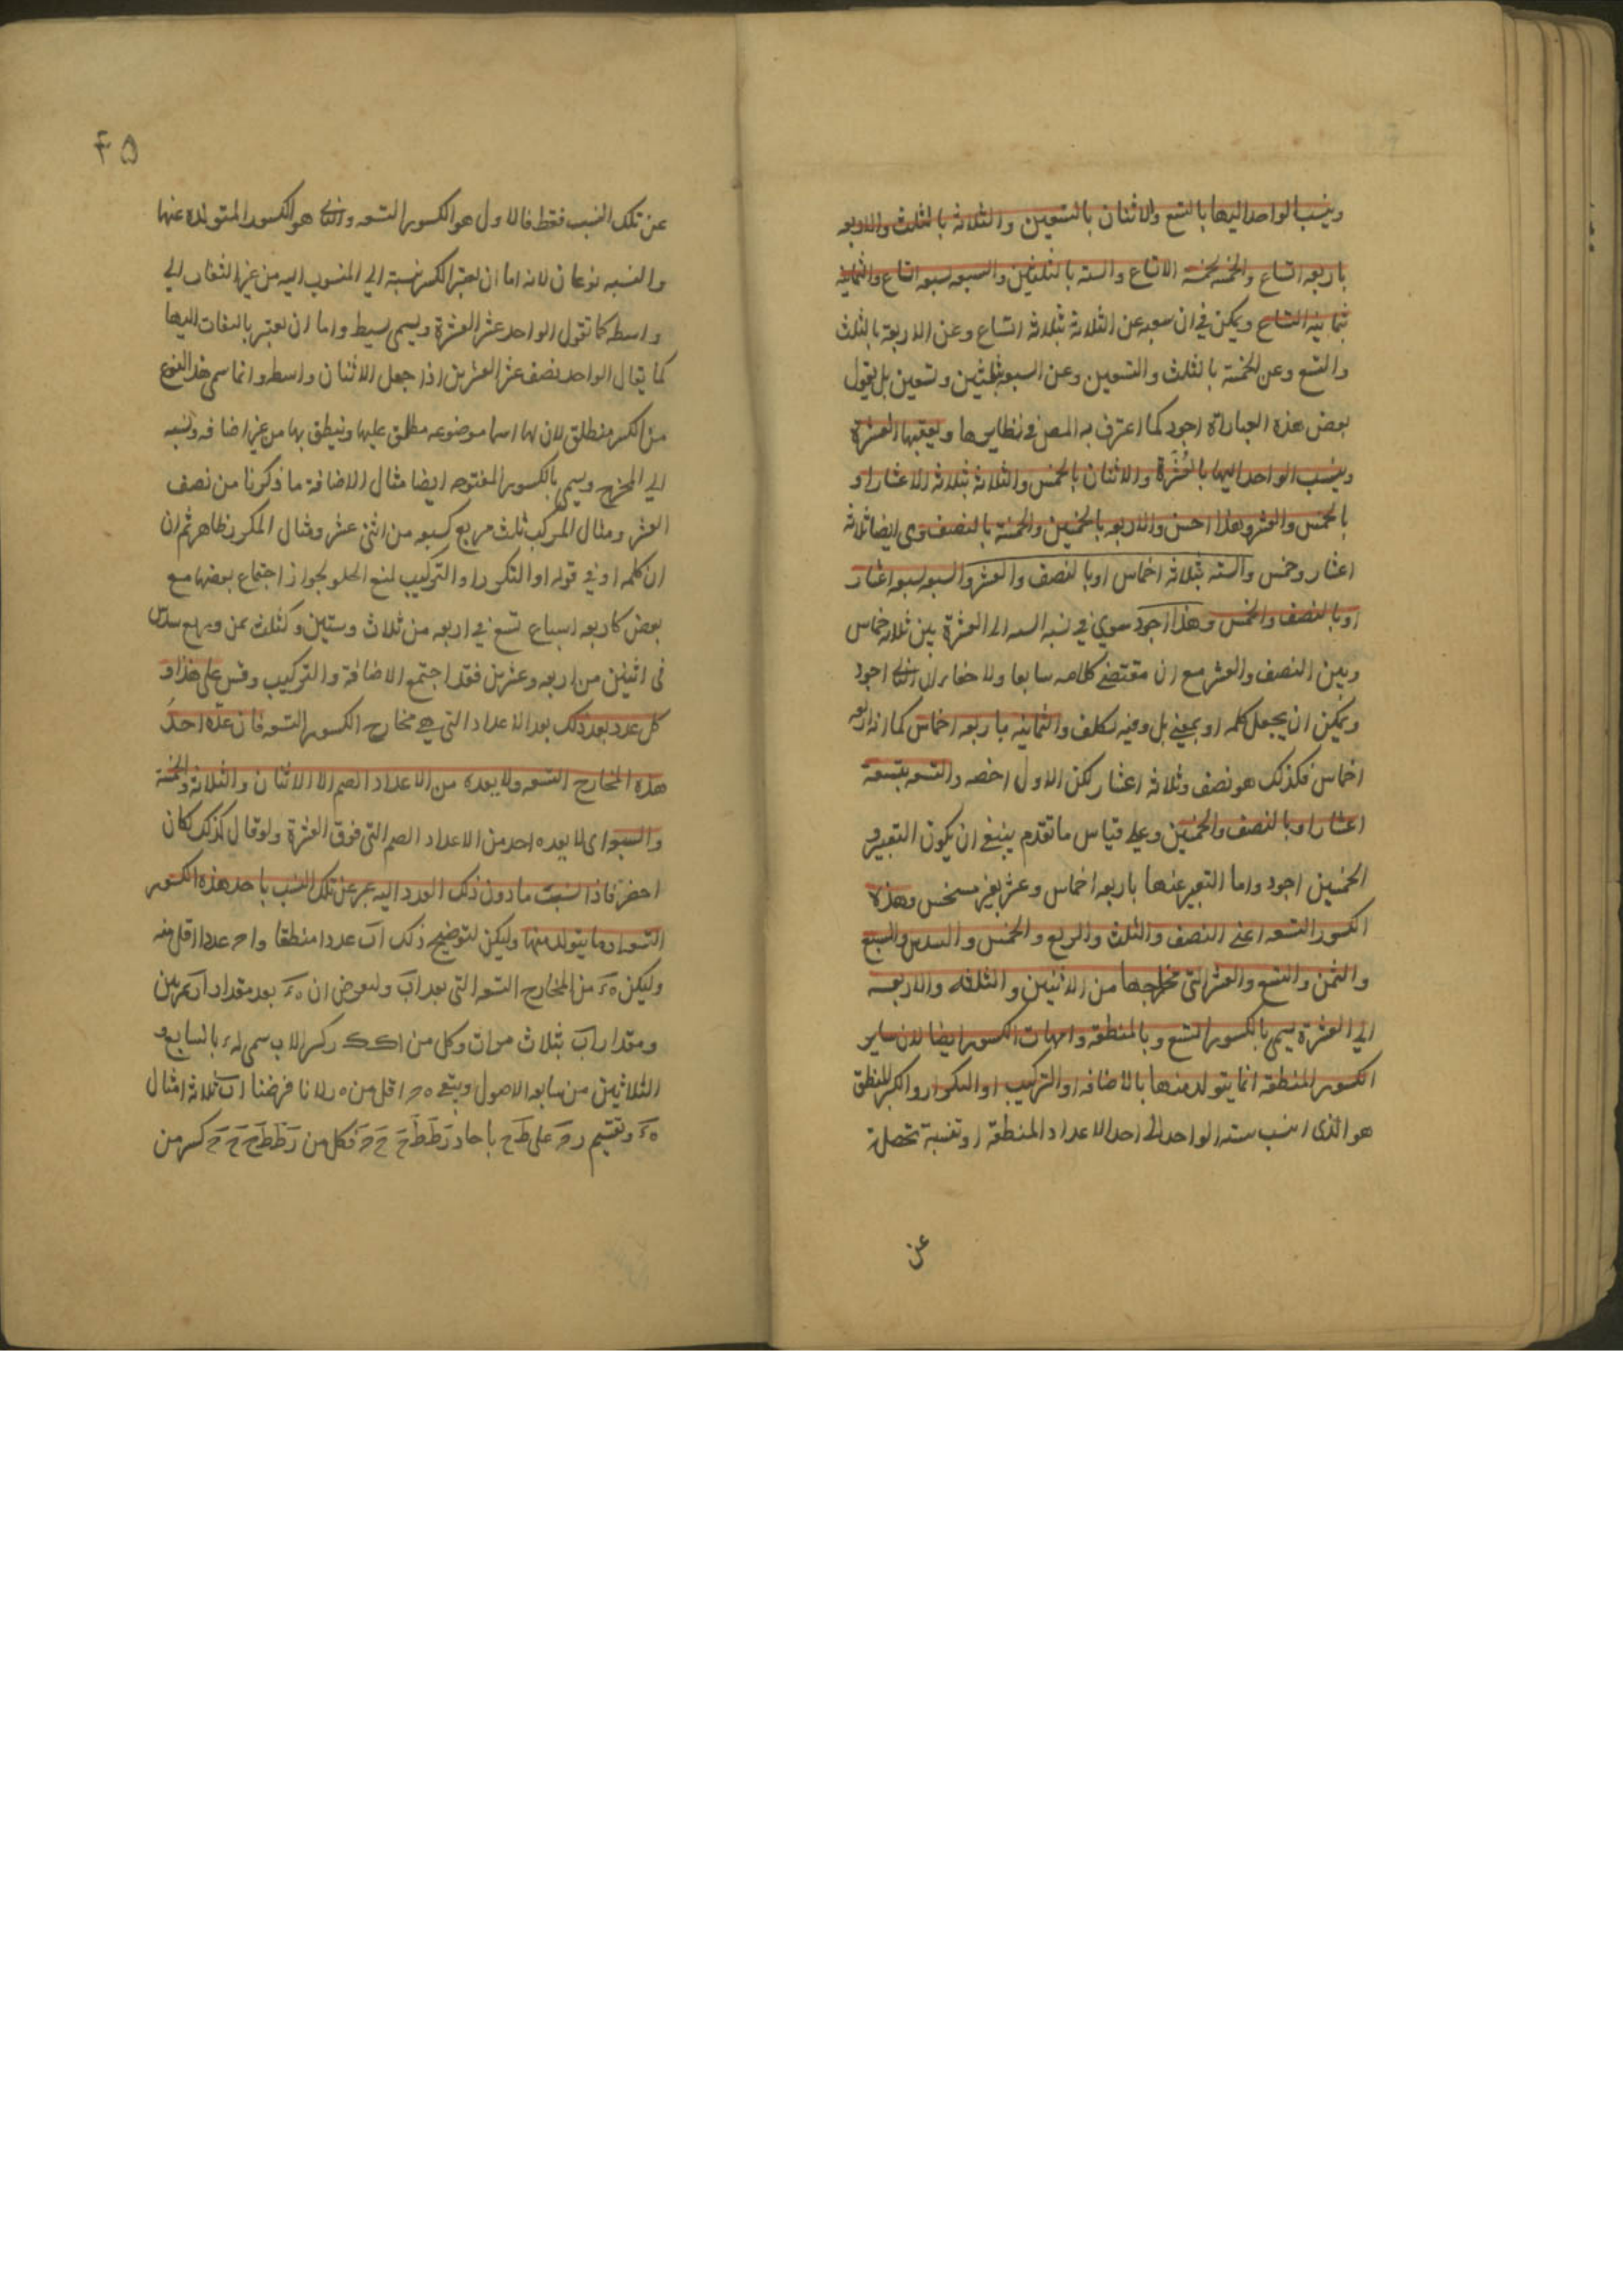 وينسب الواحد اليها بالتسع والاثنان بالتسعين والثلاثة بالثلث والاربعه
باربعه اتساع والخمسه بخمسة الاتساع والسته بالثلثين والسبعه بسبعه اتساع والثمانيه
بثمانيه اتساع ويمكن في ان عن الثلاثة بثلاثة اتساع وعن الاربعة بالثلث
والتسع وعن الخمسة بالثلث والتسعين وعن السبعه بثلثين وتسعين بل يقول
بعض هذه العبارات اجود كما اعترف به المص في نظايرها ويعقبها العشرة
وينسب الواحد اليها بالعُشر والاثنان بالخمس والثلاثة بثلاثة الاعشار او
بالخمس والعشر وهذا احسن والاربعه بالخمسين والخمسة بالنصف وى ايضا ثلاثة
اعشار وخمس والسته بثلاثه اخماس او بالنصف والعشر والسبعه بسبعه اعشار
او بالنصف والخمس وهذا اجود سوي في نسبه السته الى العشرة بين ثلاثه خماس
وبين النصف والعشر مع ان مقتضى كلامه سابقا ولا خفا ان الثاني اجود
ويمكن ان يجعل كلمه او بمعنى بل وفيه تكلف والثمانيه باربعه اخماس كما انه اربعه
اخماس فكذلك هو نصف وثلاثة اعشار لكن الاول اخصر والتسعه بتسعة
اعشار او بالنصف والخمسين وعلى قياس ما تقدم ينبغي ان يكون التعبير و
الخمسين اجود واما التعبير عنها باربعه اخماس وعشر بغير مستحسن وهذه
الكسور التسعه اعني النصف والثلث والربع والخمس والسدس والسبع
والثمن والتسع والعشر التي مخارجها من الاثنين والثلثه والاربعه
الى العشرة يسمى بالكسور التسع وبالمنطقه وامهات الكسور ايضا لان ساير
الكسور المنطقه انما يتولد منها بالاضافه او التركيب او التكرار والكسر المنطق
هو الذى ينسب سته الواحد الى احد الاعداد المنطقه او تنسبة تحصل
عن
۴۵
عن تلك النسب فقط فالاول هو الكسور التسعه والثاني هو الكسور المتولده عنها
والنسبه نوعان لانه اما ان يعتبر الكسر نسبة الى المنسوب اليه من غير التفات الى
واسطه كما تقول الواحد عشر العشرة ويسمى بسيط واما ان يعتبر بالتفات اليها
كما يقال الواحد نصف عشر العشرين اذا جعل الاثنان واسطه وانما سمى هذا النوع
من الكسر منطلق لان لها اسما موضوعه مطلق عليها وينطق بها من غير اضافه ونسبه
الى المخرج ويسمى بالكسور المفتوحه ايضا مثال الاضافة ما ذكرنا من نصف
العشر ومثال المركب ثلث وربع كسبعه من اثنى عشر ومثال المكرر ظاهر ثم ان
ان كلمه او في قوله او التكرر او التركيب لمنع الخلو لجواز اجتماع بعضها مع
بعض كاربعه اسباع تسع في اربعه من ثلاث وستين وكثلث ثمن وربع سدس
في اثنين من اربعه وعشرين فقد اجتمع الاضافة والتركيب وقس على هذا و
كل عدد بعد ذلك بعد الاعداد التي هي مخارج الكسور التسعه فان عدّه احد
هذه المخارج التسعه ولا يعده من الاعداد الصم الا الاثنان والثلاثة والخمسة
والسبعه اى لا يعده احد من الاعداد الصم التي فوق العشرة ولو قال كذلك لكان
اخصر فاذا نسبت ما دون ذلك العدد اليه عبر عن تلك النسب باحد هذه الكسور
التسعه او ما يتولد منها وليكن لتوضيح ذلك اب عددا منطقا واحـ عددا اقل منه
وليكن ه‍ء من المخارج التسعه التي بعد اب ولنعرض ان ه‍ء بعد مقدار ار مرتين
ومقدار اب بثلاث مرات وكل من كسر الاب سمى له بالسابع و
الثلاثين من سابعه الاصول ويتبع اقل من لانا فرضنا اب ثلاثة امثال
ه‍ء وتقسيم على باحاد فكل من كسر من